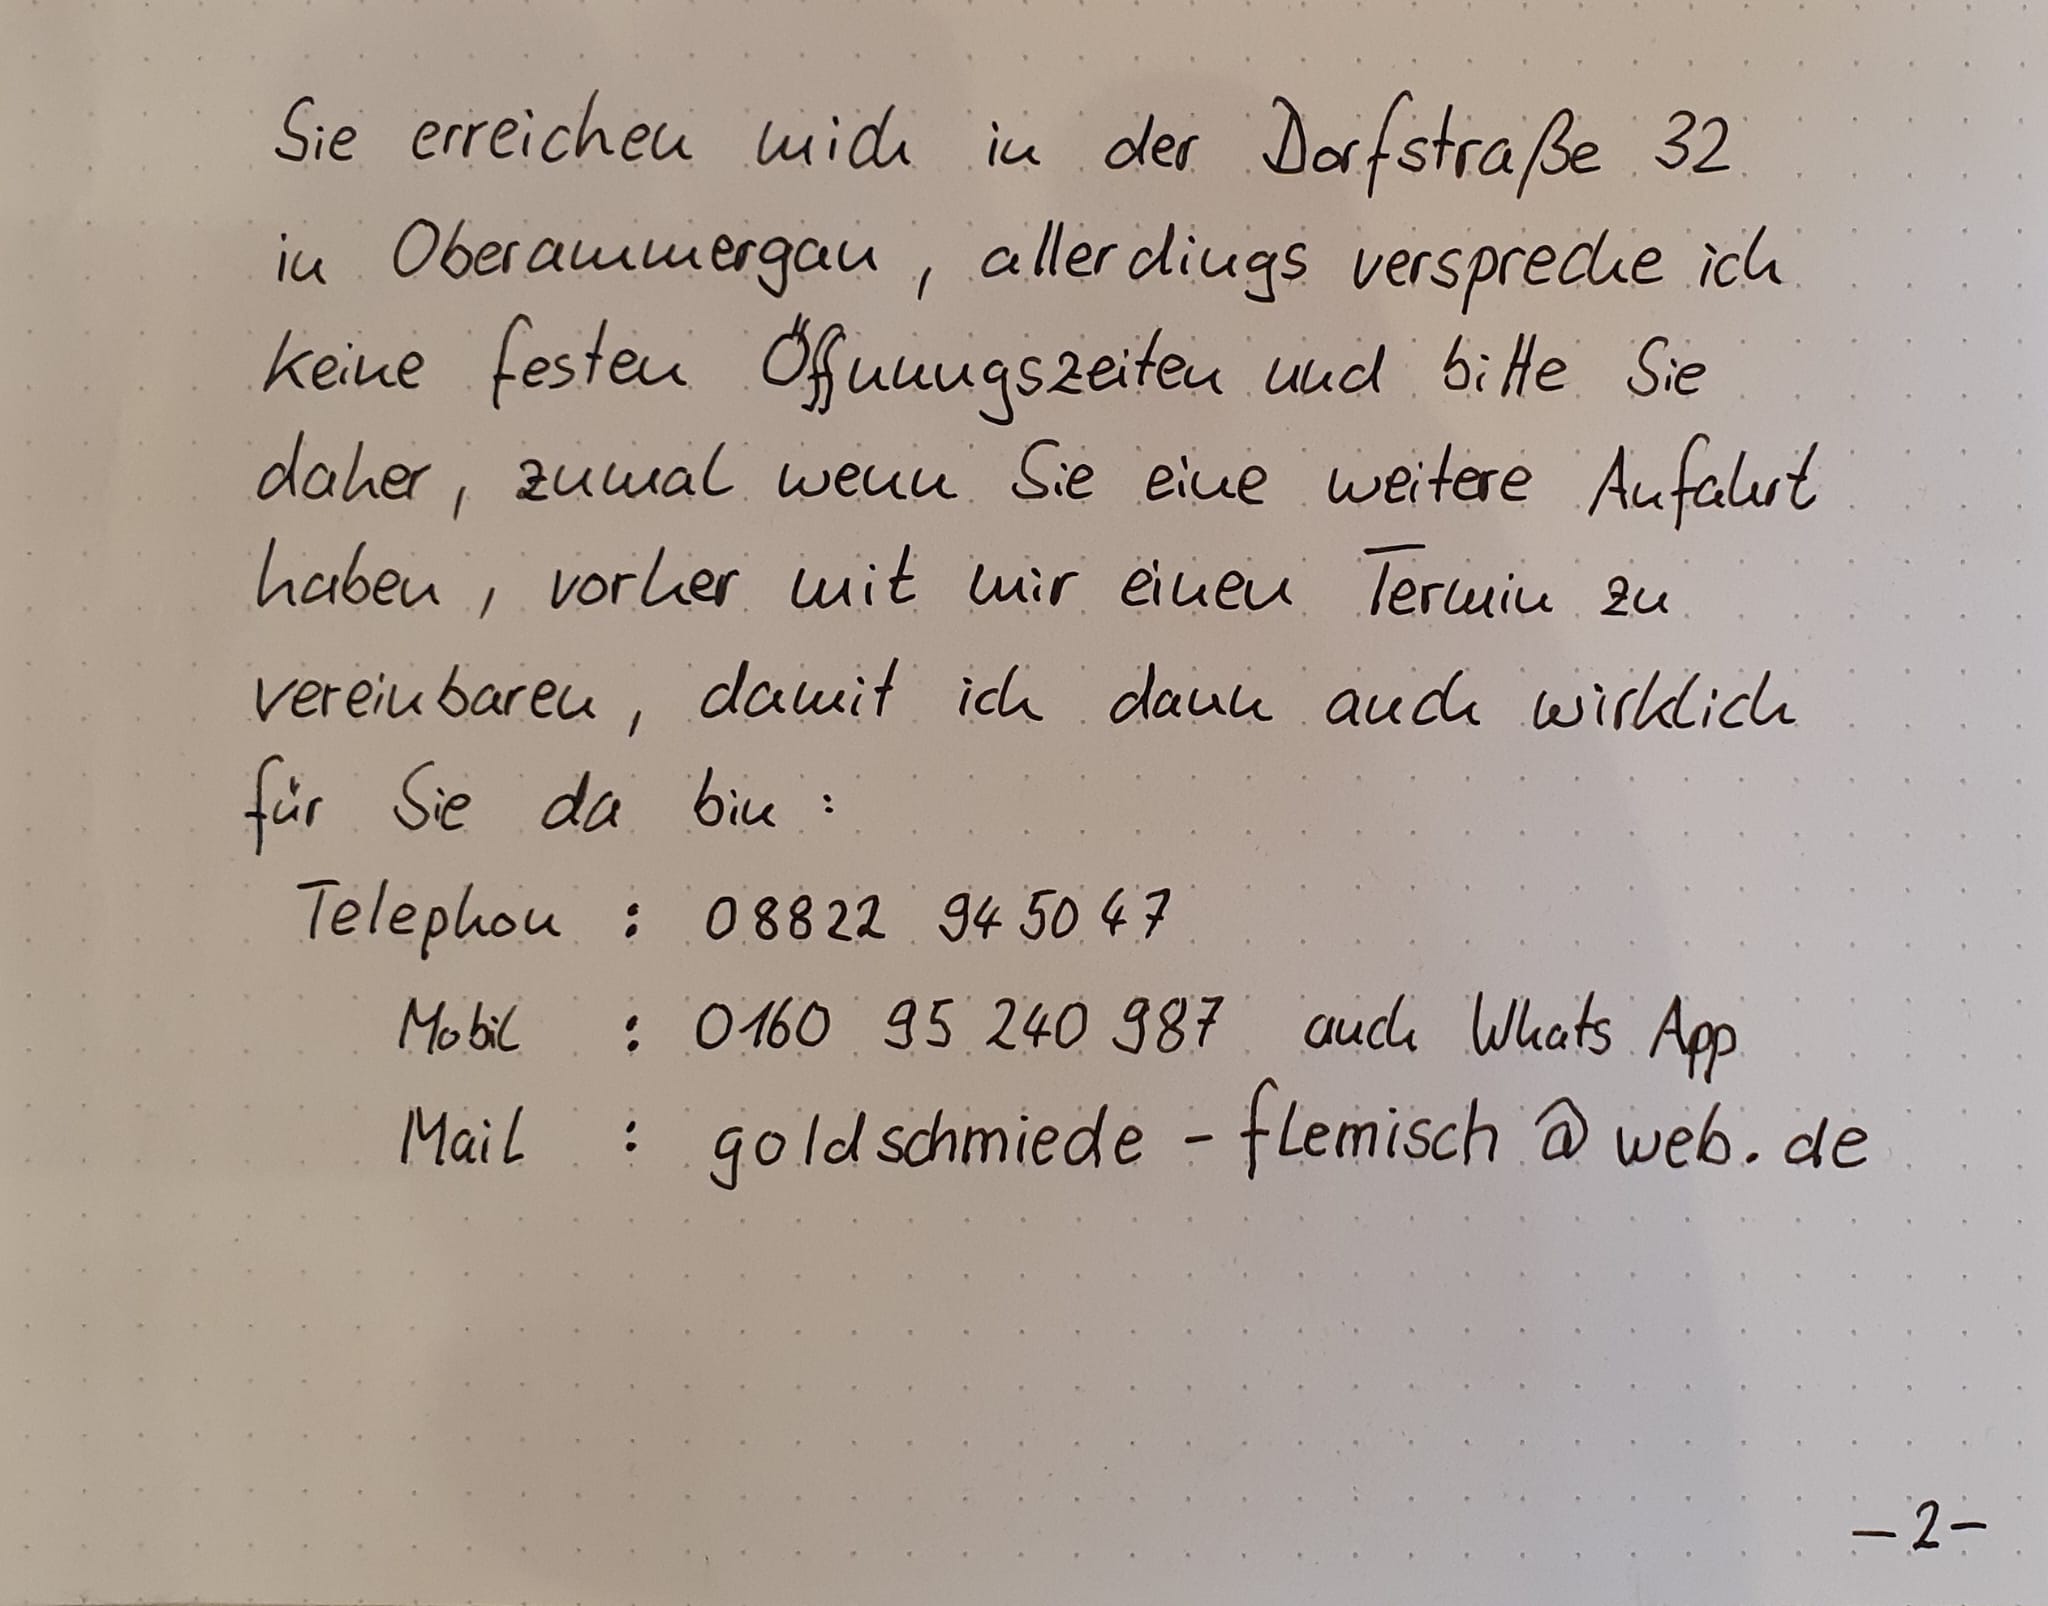 Sie erreichen mich in der Dorfstraße 32
in Oberammergau, allerdings verspreche ich
keine festen Öffnungszeiten und bitte Sie
daher, zumal wenn Sie eine weitere Anfahrt
haben, vorher mit mir einen Termin zu
vereinbaren, damit ich dann auch wirklich
für Sie da bin:
Telephon : 08822 94 50 47
Mobil : 0160 95 240 987 auch Whats App
Mail : goldschmiede - flemisch @ web. de
- 2 -